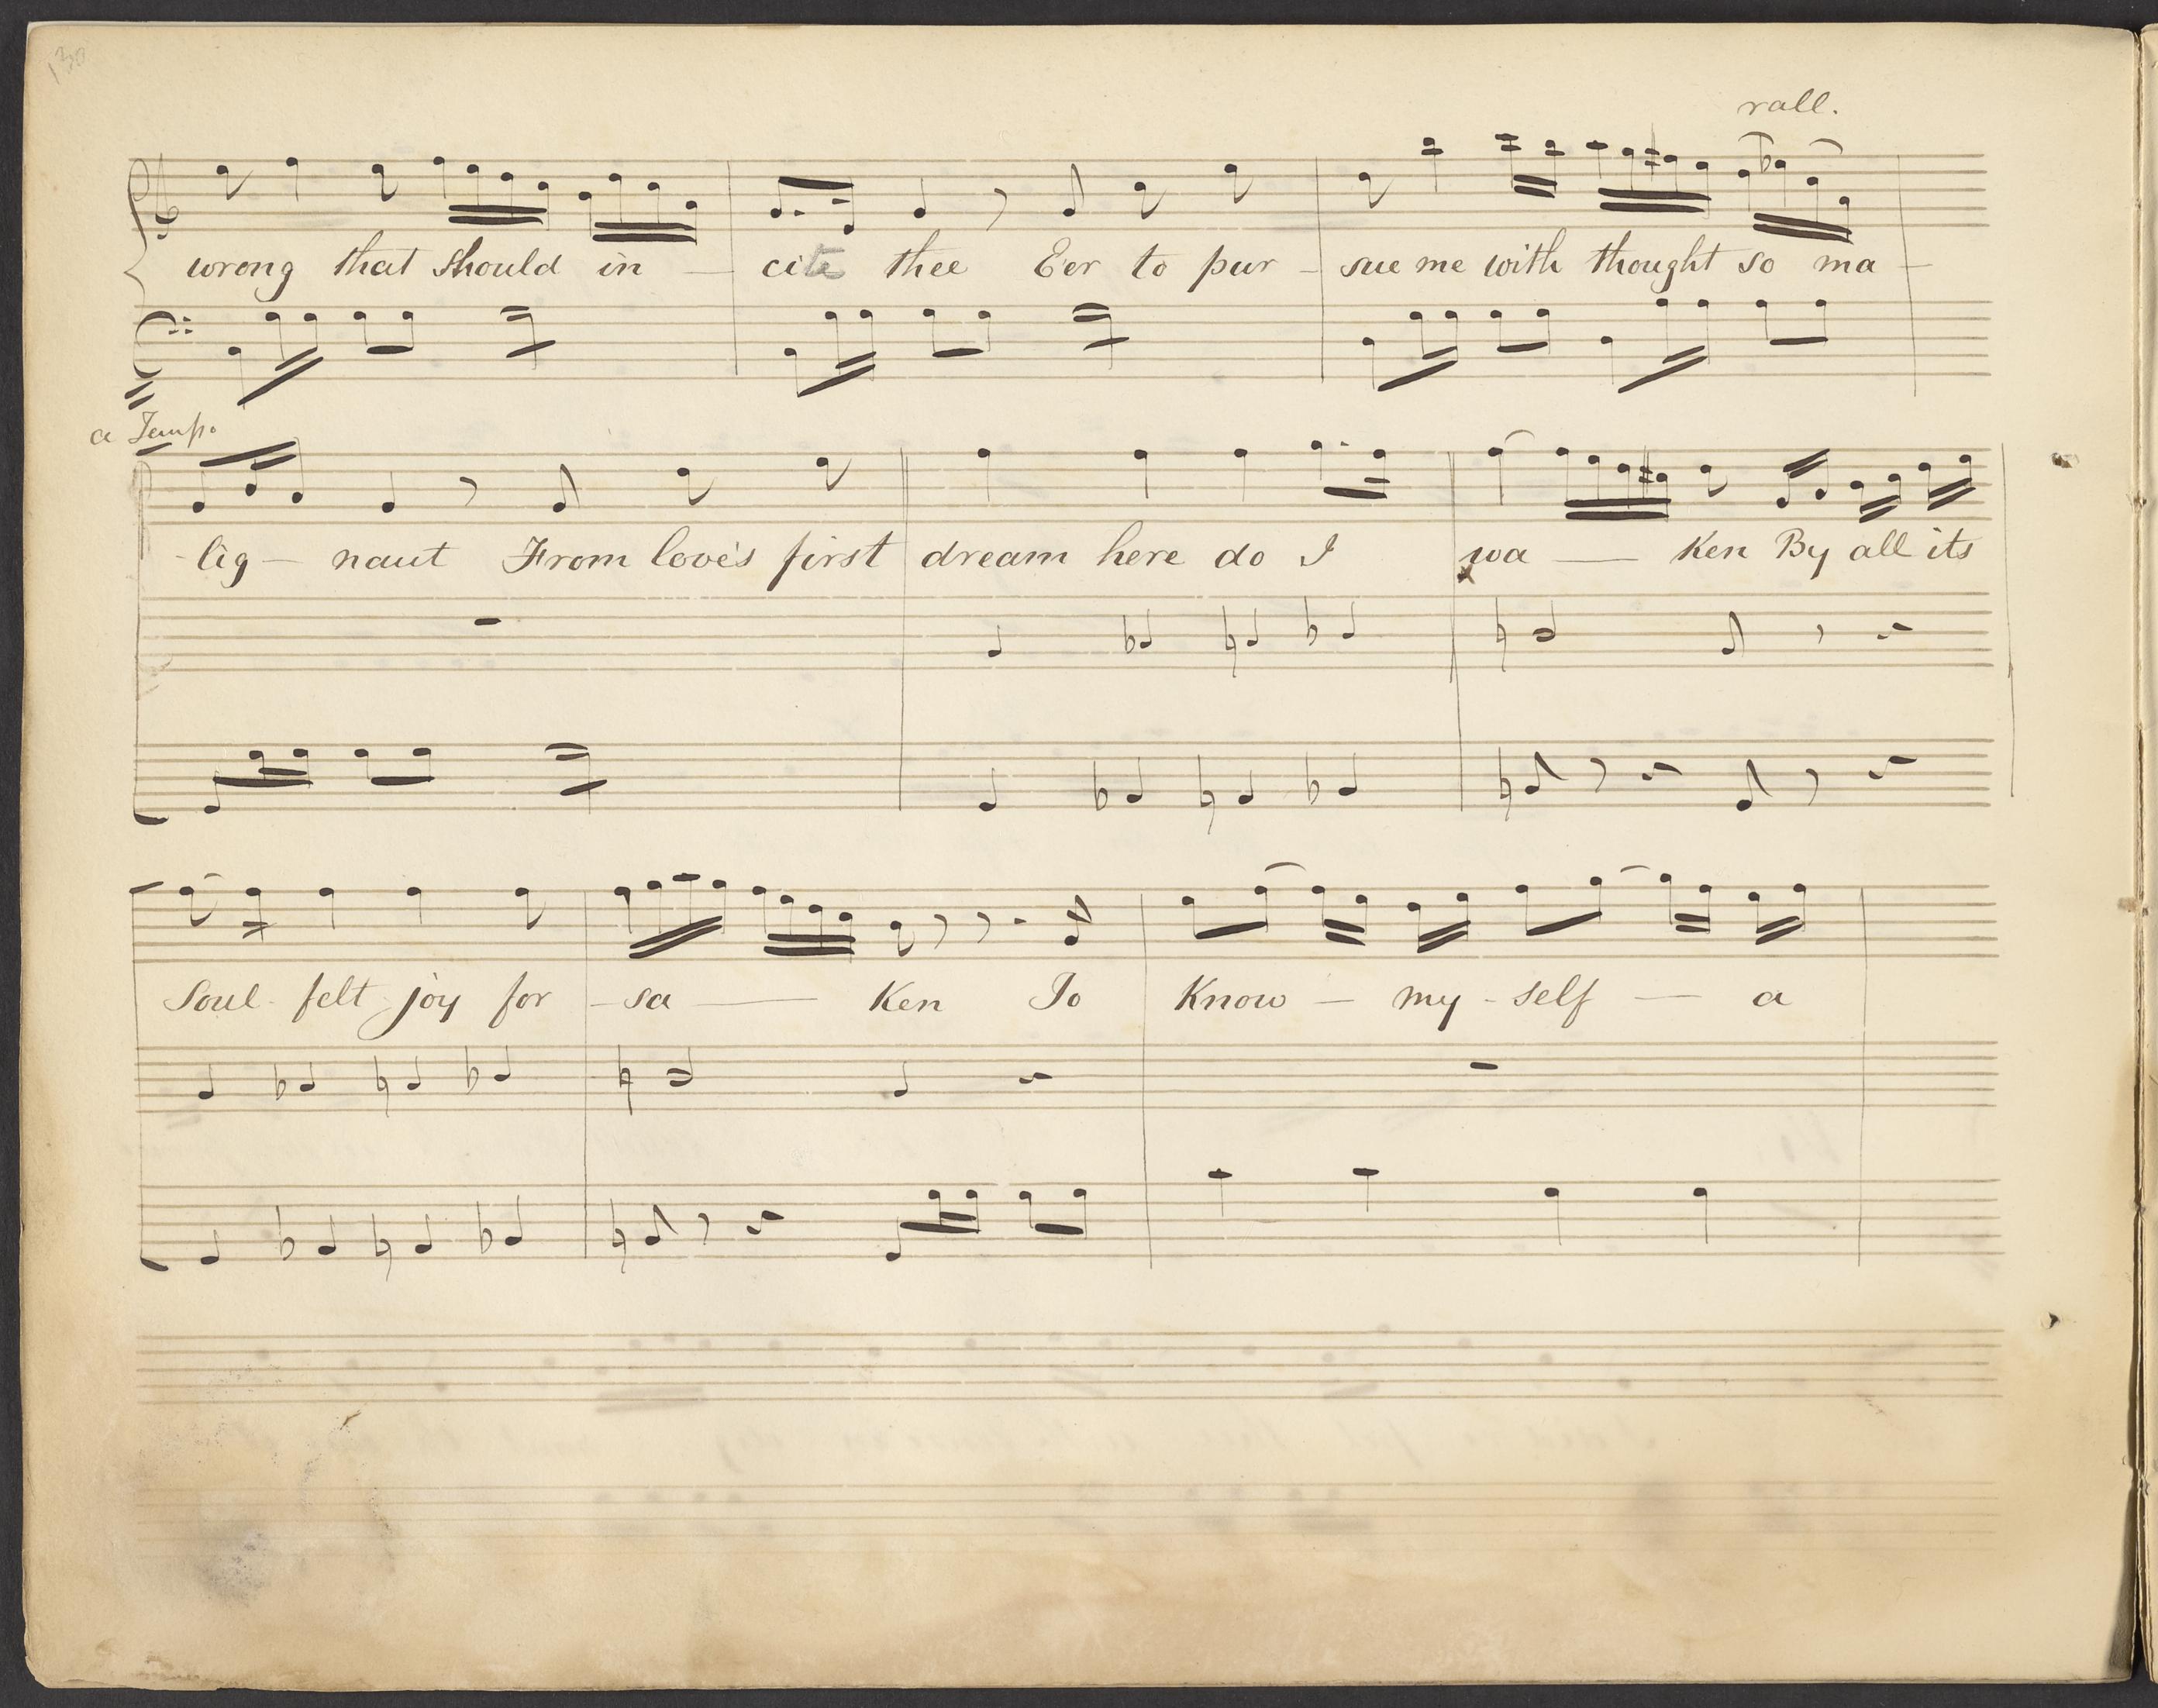 130
rall.
wrong that should in — cite thee E'er to pur – sue me with thought so ma –
a Tempo
- lig – naut From love's first dream here do I wa — ken By all its
Soul felt joy for – sa — ken To Know – my - self — a